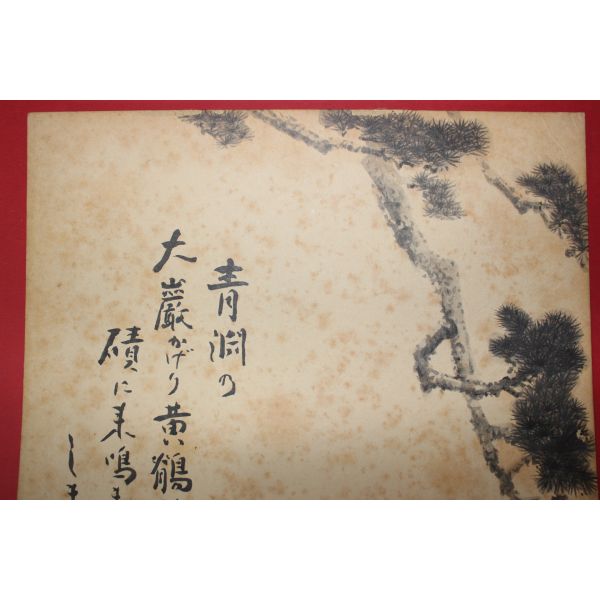 青淵の
大巌かげり黄鶺
磧に来鳴き
しき